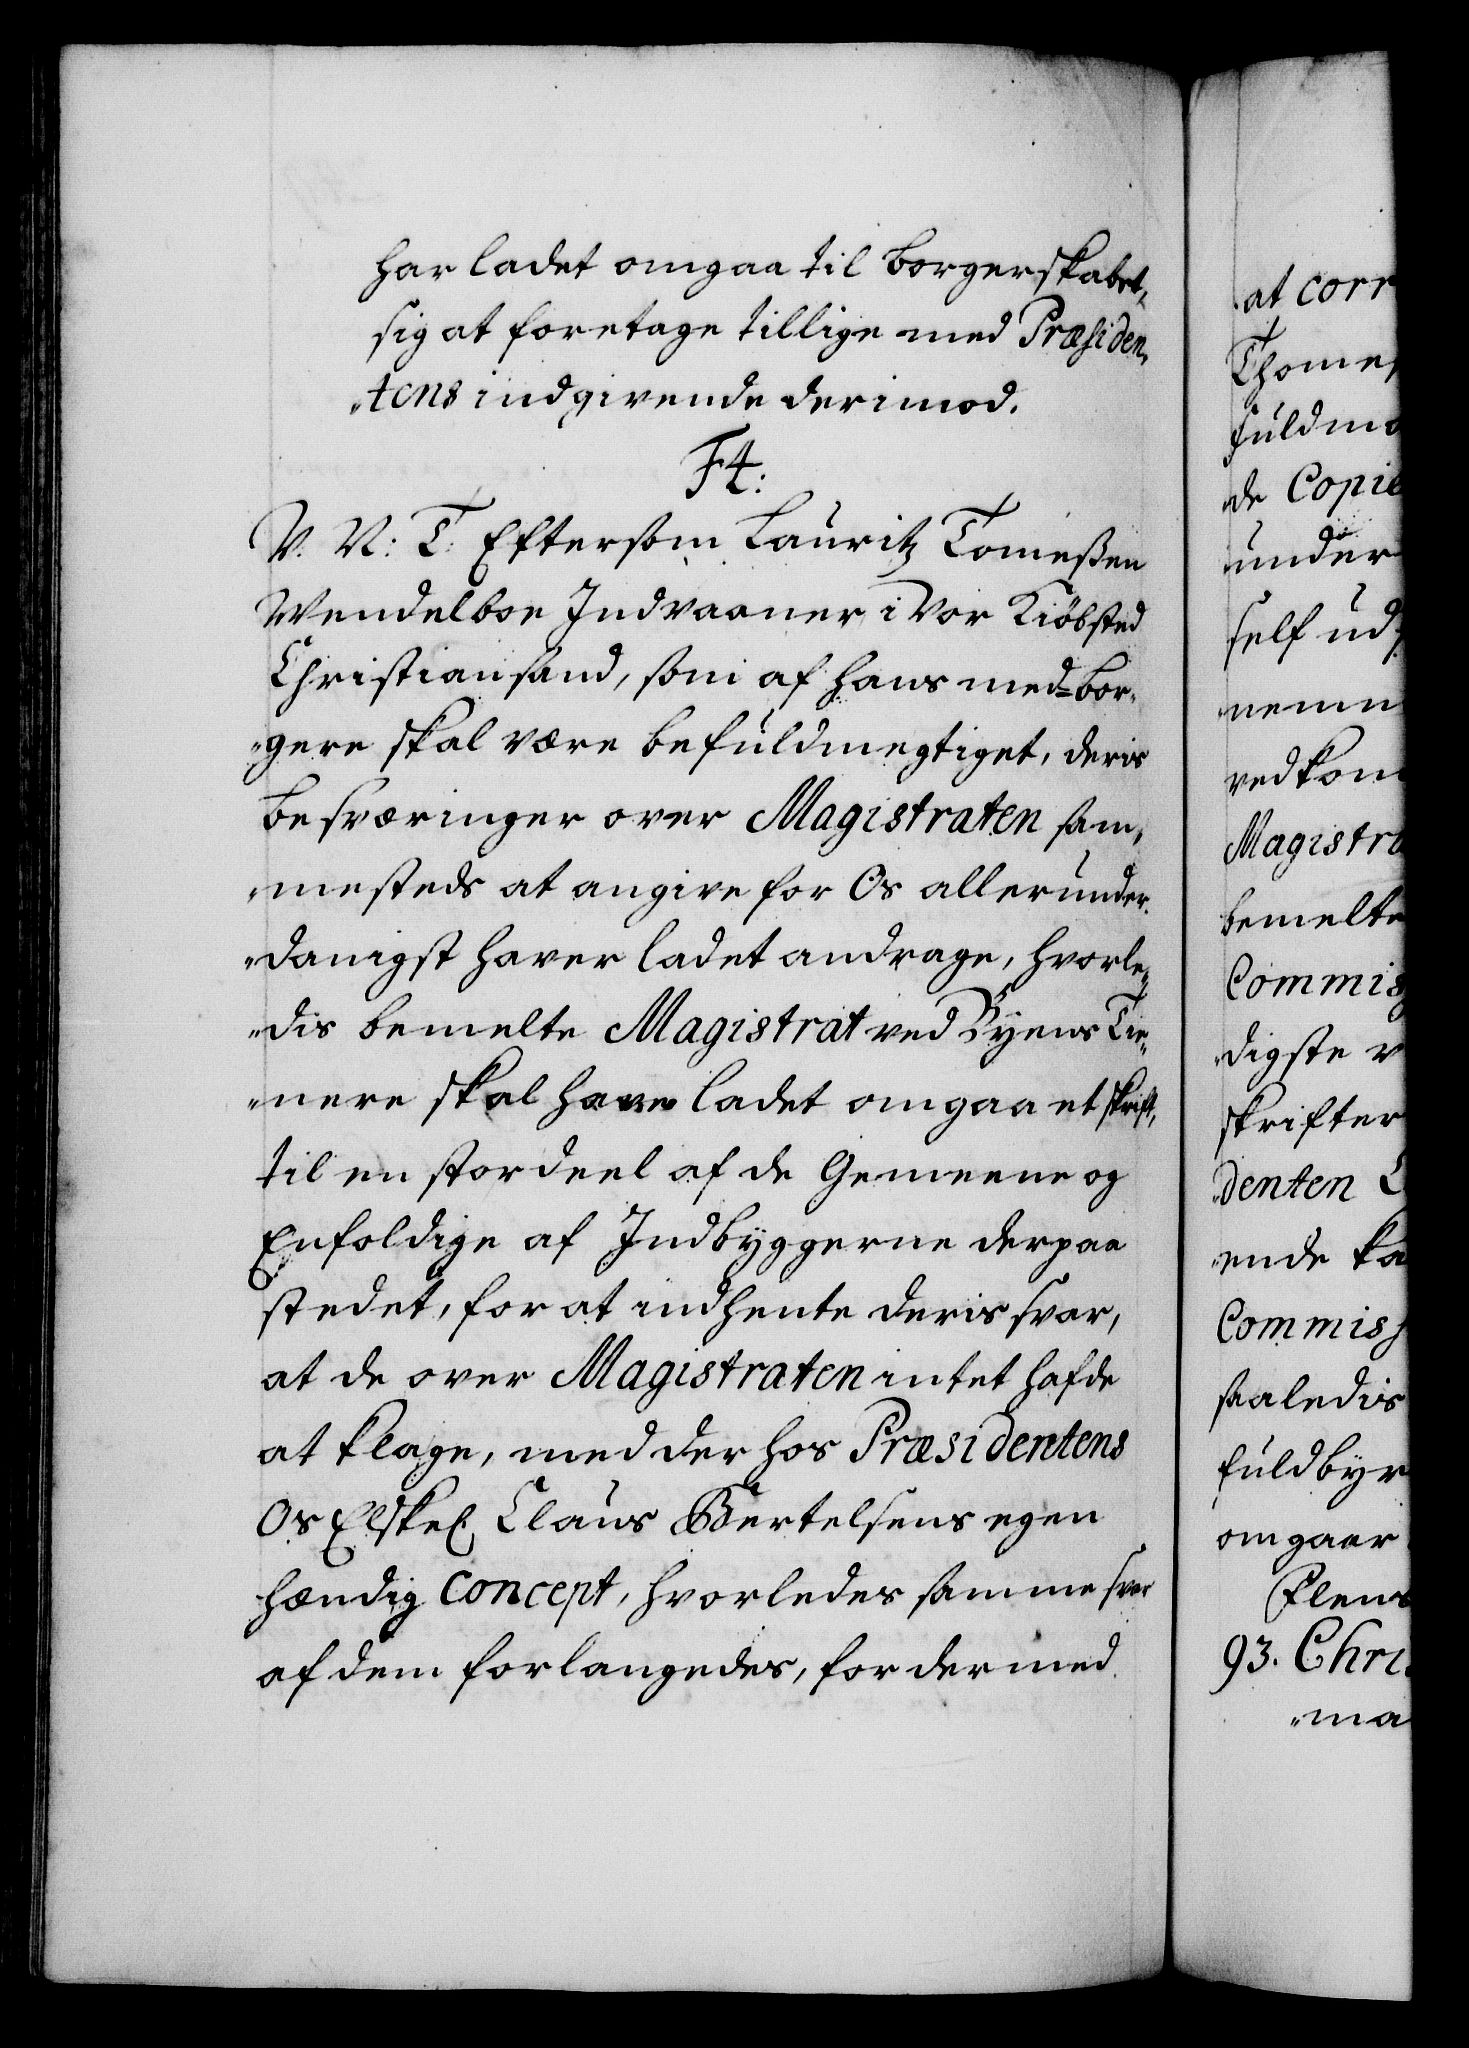 har ladet omgaa til borgerskabet,
sig at foretage tillige med Præsiden„
„tens indgivende derimod.
F4:
V. V: T. Eftersom Lauritz Tomeßen
Wendelboe Indvaaner i vor Kiöbsted
Christiansand, som af hans med-bor„
„gere skal være befuldmegtiget, deris
besværinger over Magistraten sam„
„mesteds at angive for Os allerunder„
„danigst haver ladet andrage, hvorle„
„dis bemelte Magistrat ved Byens Tie„
„nere skal have ladet omgaa et skrift,
til en stor deel af de Gemeene og
Enfoldige af Indbyggerne der paa
stedet, for at indhente deris svar,
at de over Magistraten intet hafde
at klage, med der hos Præsidentens
Os Elskel. Claus Bertelsens egen
hændig Concept, hvorledes samme svar
af dem forlangedes, for dermed
at corr
Thomes
fuldma
de Copie
under
self ud
nemn
vedkom
Magistra
bemelte
Commis
digste v
skrifter
„denten C
„ende ka
Commis
saaledis
fuldbyr
omgaar
Flens
93. Chri
„ma